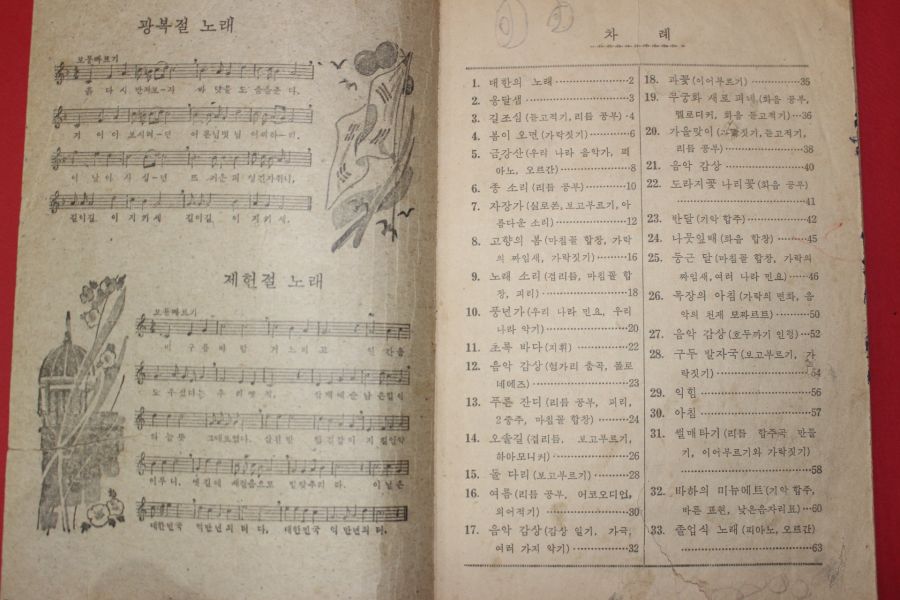 광복절 노래
보통빠르기
흙 다시 만져보자 바닷물도 춤을춘다.
길이길이 지키세 길이길이 지키세.
제헌절 노래
보통빠르기
대한민국 억만년의 터다, 대한민국 억만년의 터.
차 례
1. 대한의 노래 2
2. 옹달샘 3
3. 길조심(듣고적기, 리듬 공부) 4
4. 봄이 오면(가락짓기) 6
5. 금강산(우리 나라 음악가, 피
아노, 오르간) 8
6. 종 소리(리듬 공부) 10
7. 자장가(실로폰, 보고부르기, 아
름다운 소리) 12
8. 고향의 봄(마침꼴 합창, 가락
의 짜임새, 가락짓기) 16
9. 노래 소리(겹리듬, 마침꼴 합
창, 피리) 18
10. 풍년가(우리 나라 민요, 우리
나라 악기) 20
11. 초록 바다(지휘) 22
12. 음악 감상(헝가리 춤곡, 폴로
네에즈) 23
13. 푸른 잔디(리듬 공부, 피리,
2중주, 마침꼴 합창) 24
14. 오솔길(겹리듬, 보고부르기,
하아모니커) 26
15. 돌 다리(보고부르기) 28
16. 여름(리듬 공부, 어코오디언,
외어적기) 30
17. 음악 감상(감상 일기, 가극,
여러 가지 악기) 32
18. 과꽃(이어부르기) 35
19. 무궁화 새로 피네(화음 공부,
멜로디커, 화음 듣고적기) 36
20. 가을맞이(가락짓기, 듣고적기,
리듬 공부) 38
21. 음악 감상 40
22. 도라지꽃 나리꽃(화음 공부)
41
23. 반달(기악 합주) 42
24. 나뭇잎배(화음 합창) 45
25. 둥근 달(마침꼴 합창, 가락의
짜임새, 여러 나라 민요) 46
26. 목장의 아침(가락의 변화, 음
악의 천재 모짜르트) 50
27. 음악 감상(호두까기 인형) 52
28. 구두 발자국(보고부르기, 가
락짓기) 54
29. 익힘 56
30. 아침 57
31. 썰매타기(리듬 합주곡 만들
기, 이어부르기와 가락짓기)
58
32. 바하의 미뉴에트(기악 합주,
바른 표현, 낮은음자리표) 60
33. 졸업식 노래(피아노, 오르간)
63